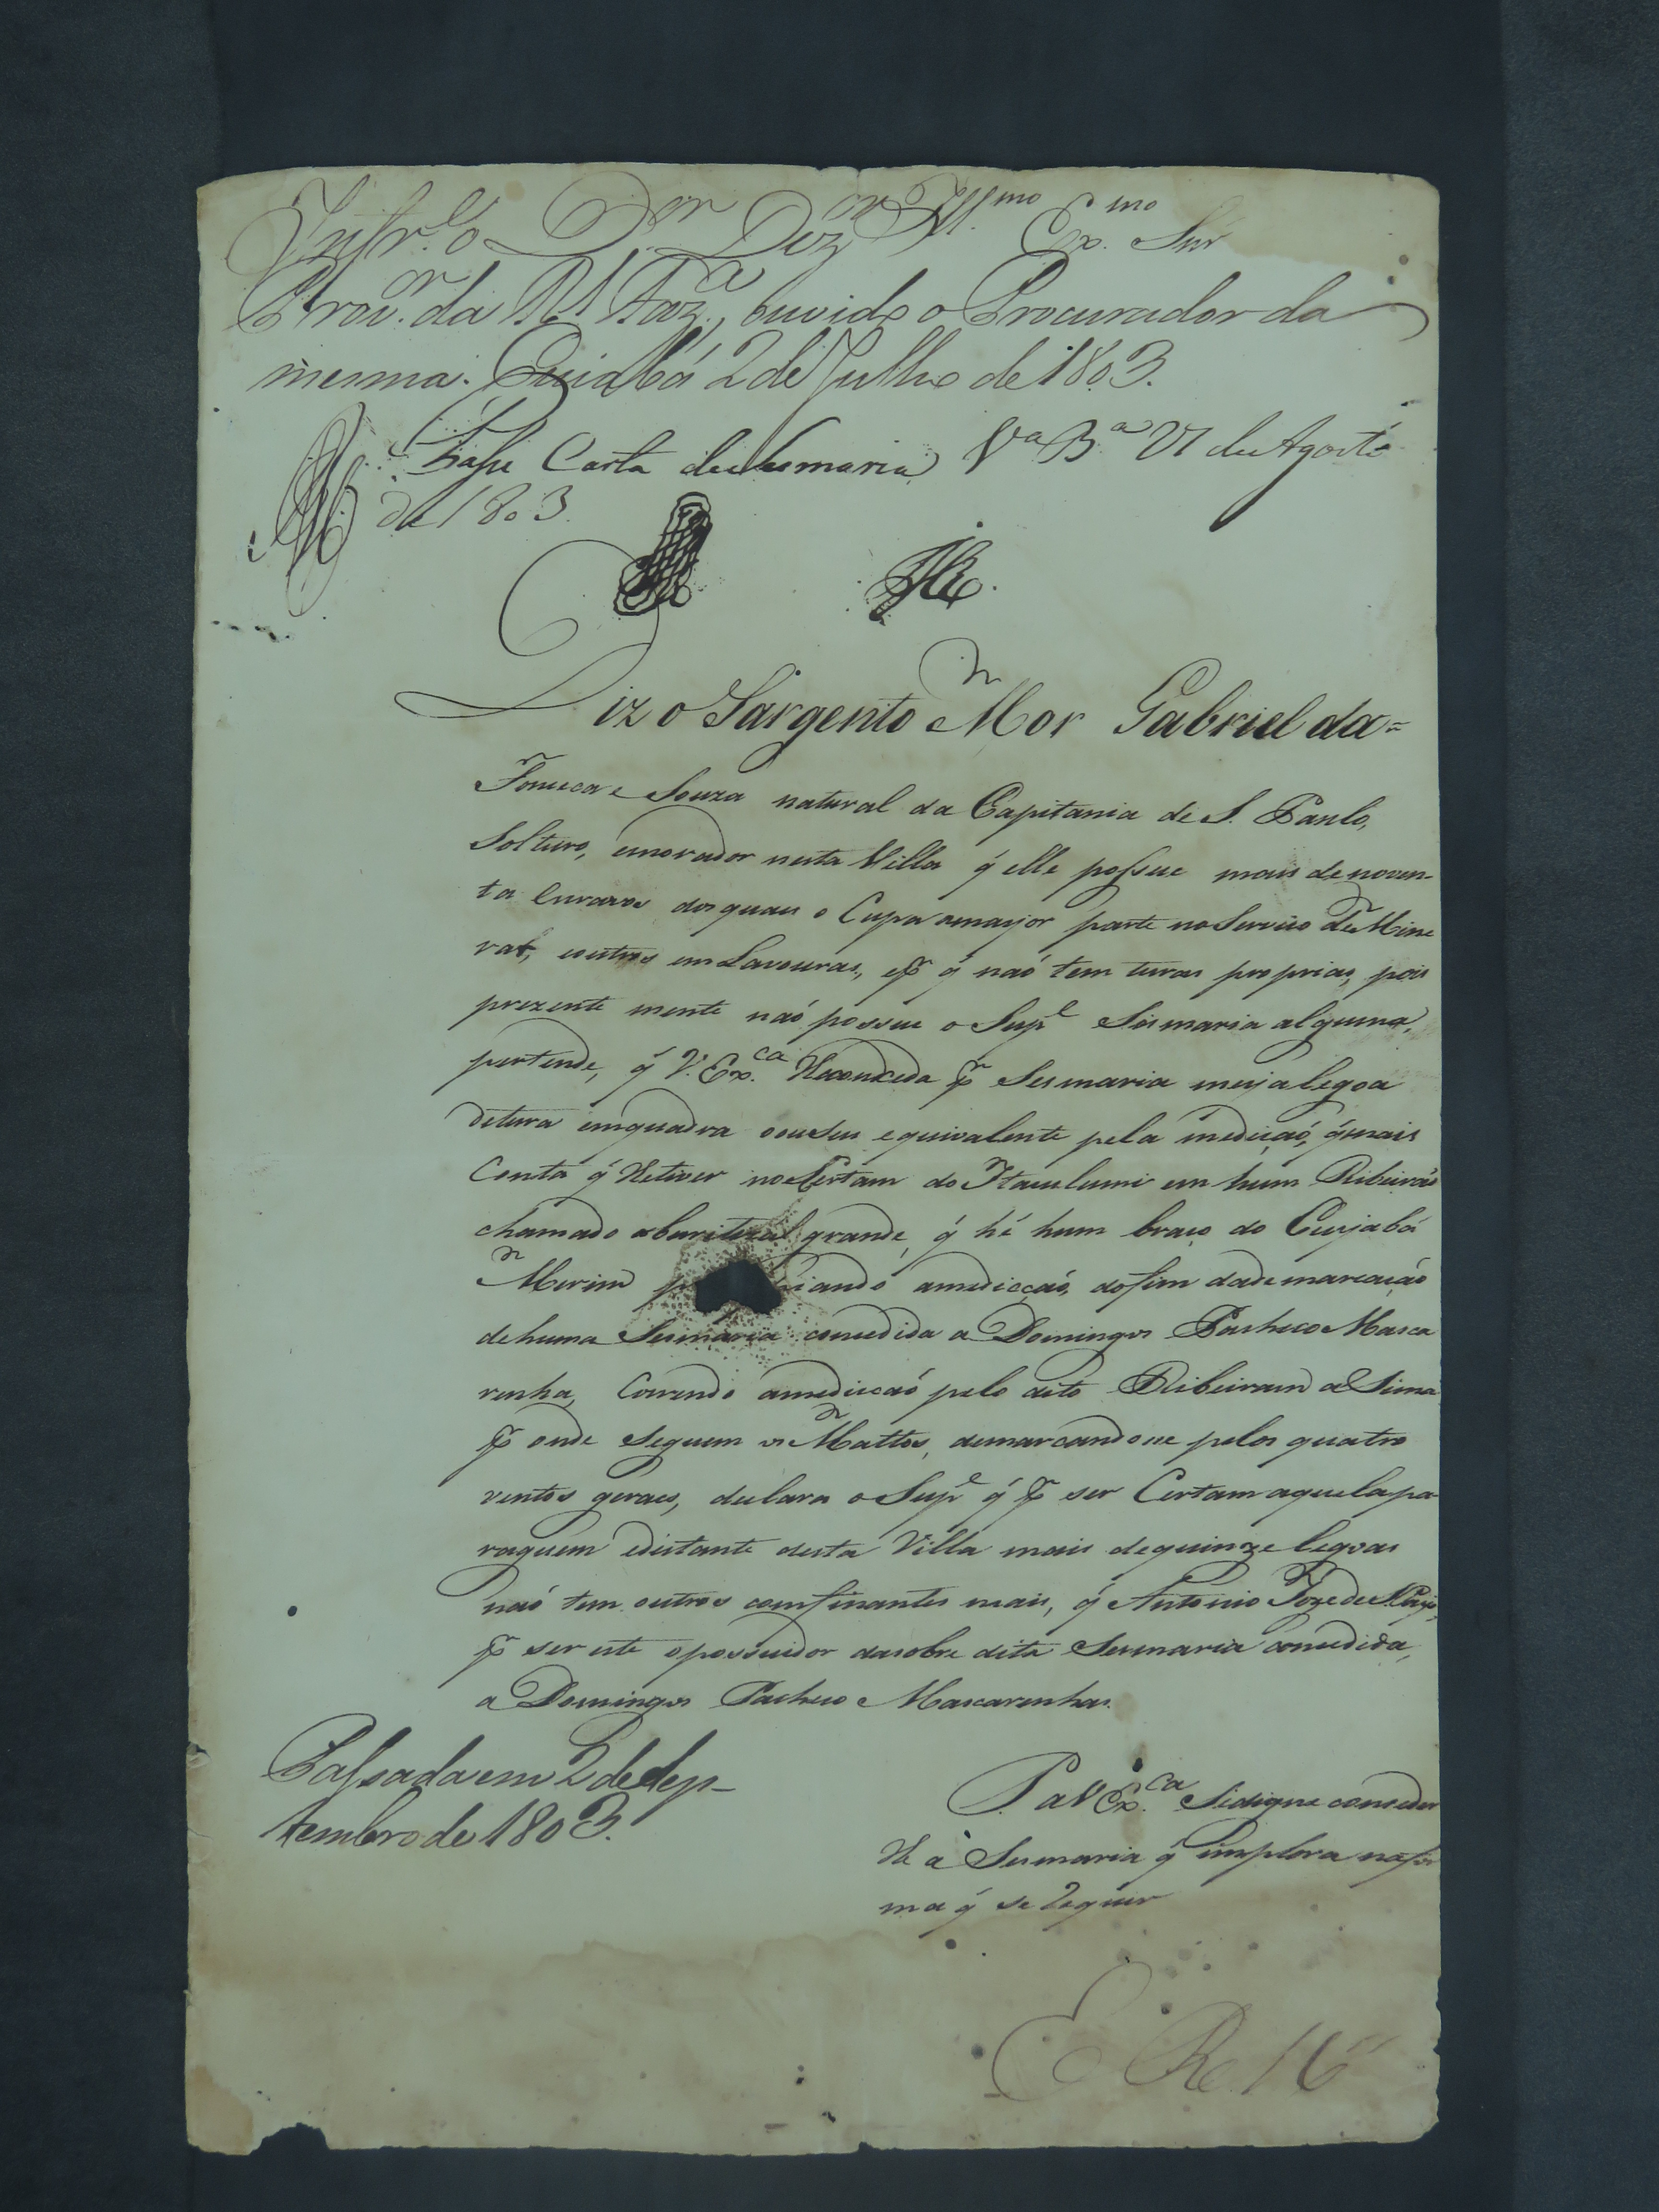 Infr.e o D.or Dez.or Ill.mo Ex.mo Snr
Prov.or da R.l Faz.a, ouvido o Procurador da
mesma. Cuiabá 2 de Julho de 1803.
Passe Carta de Sesmaria V.a B.a 27 de Agosto
de 1803.
Diz o Sargento Mor Gabriel da=
Fonseca e Souza natural da Capitania de S. Paulo,
Solteiro, emorador nesta Villa q̃ elle possue mais de noven-
ta Escravos dos quaes o Cupa amayor parte no Servico de Mine
rar, eoutros em Lavouras, e p.r q̃ naó tem terras proprias, pois
prezente mente naó possue o Sup.e Sismaria alguma,
pertende, q̃ V. Ex.ca lhe conceda p.r Sesmaria meya legoa
de terra em quadra ou seu equivalente pela mediçaó, q̃ mais
Conta q̃ lhe tiver no Certam do Itaculumi em hum Ribeiraó
chamado aburitizal grande, q̃ hé hum braço do Cuyabá
Merim p iando amedicçaó, do fim dade marcaçaó
de huma Sesmaria concedida a Domingos Pacheco Masca
renha, Correndo amedicçaó pelo dito Ribeiram aSima
p.r onde seguem os Mattos, demarcandose pelos quatro
ventos geraes, declara o Sup.e q̃ p.r ser Certam aquela pa
ragem edistante desta Villa mais de quinze legoas
naó tem outros comfinantes mais, q̃ Antonio Joze de
p.r ser este opossuidor dasobre dita Sesmaria concedida,
a Domingos Pacheco Mascarenhas.
Passada em 2 de Sep-
tembro de 1803.
P. a V Ex.ca Sedigne conceder
lhe a Sesmaria q̃ implora na for
ma q̃ se Requer
E R M.ce